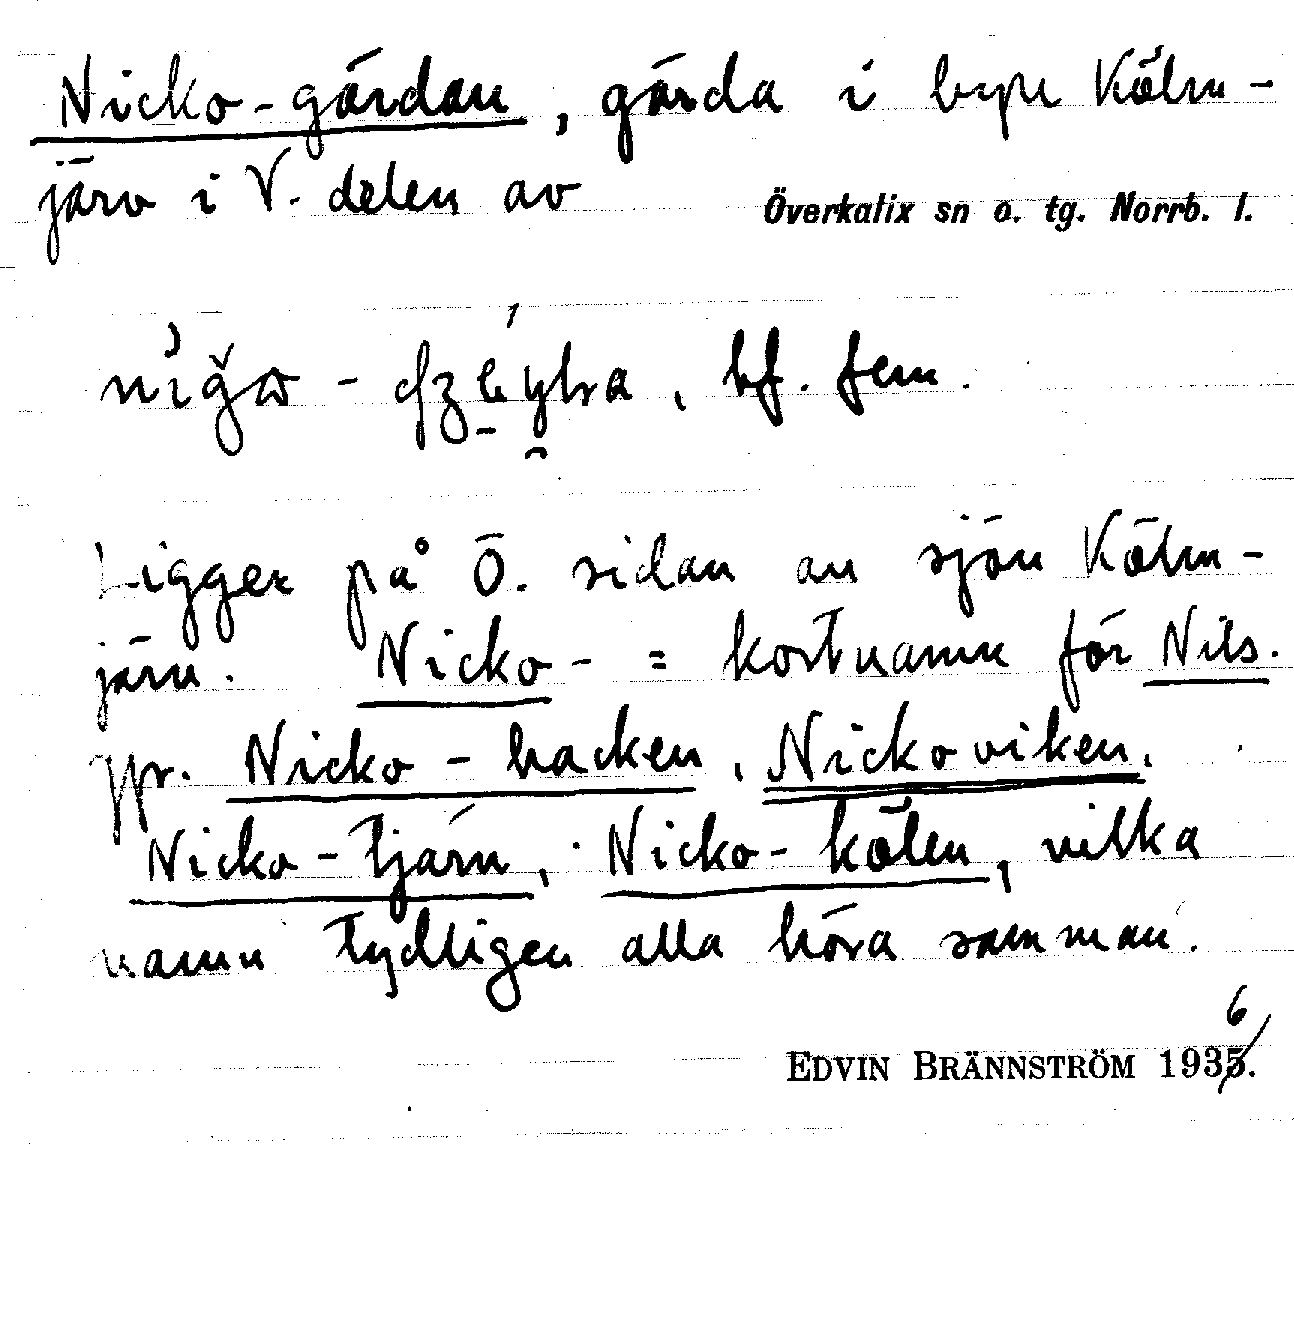 Nicko-gärdan, gärda i byn Kölm-
järv i V. delen av Överkalix sn o. tg. Norrb. l.
bf. fem.
Ligger på Ö. sidan av sjön Kölm-
järv. Nicko- = kortnamn för Nils.
Jfr. Nicko-backen, Nickoviken,
Nicko-tjärn, Nicko-kölen, vilka
namn tydligen alla höra samman.
6
EDVIN BRÄNNSTRÖM 1935.